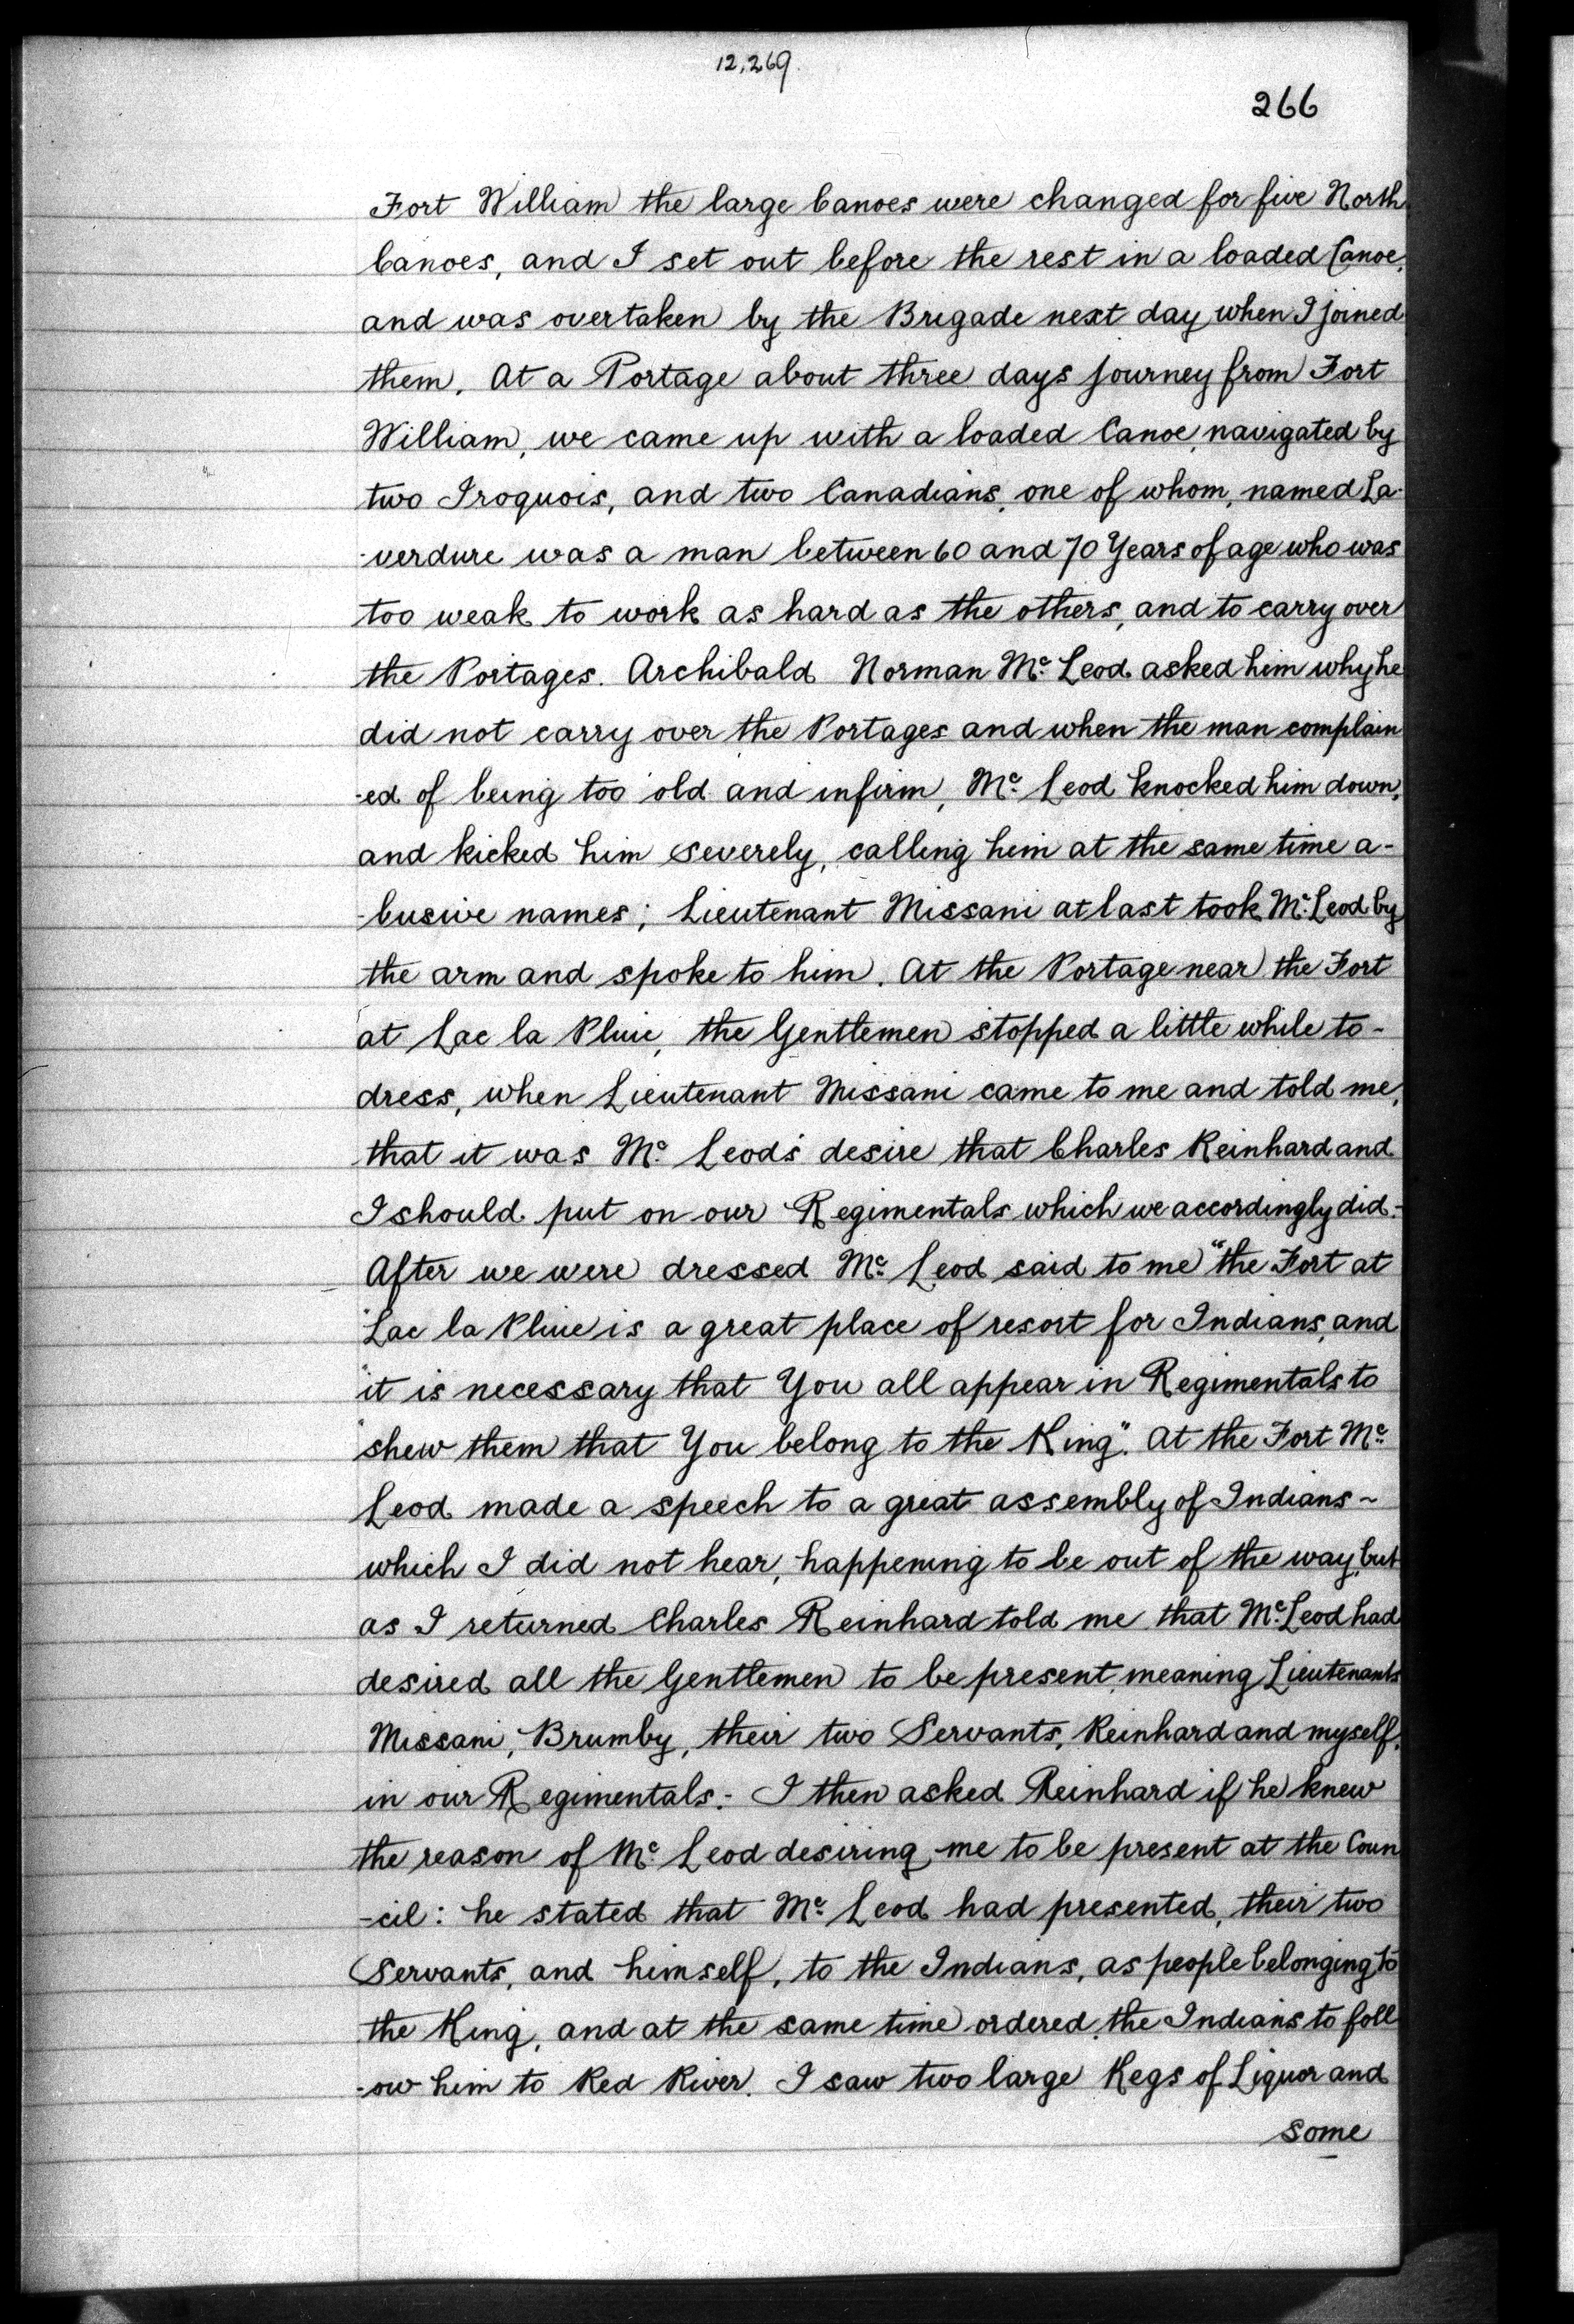 12,269.
266
Fort William the large Canoes were changed for five North
Canoes, and I set out before the rest in a loaded Canoe,
and was overtaken by the Brigade next day when I joined
them. At a Portage about three days journey from Fort
William, we came up with a loaded Canoe, navigated by
two Iroquois, and two Canadians, one of whom, named La-
-verdure was a man between 60 and 70 Years of age who was
too weak to work as hard as the others, and to carry over
the Portages. Archibald Norman Mc. Leod asked him why he
did not carry over the Portages and when the man complain
-ed of being too old and infirm, Mc. Leod knocked him down,
and kicked him severely, calling him at the same time a-
-busive names; Lieutenant Missani at last took Mc. Leod by
the arm and spoke to him. At the Portage near the Fort
at Lac la Pluie, the Gentlemen stopped a little while to-
dress, when Lieutenant Missani came to me and told me,
that it was Mc. Leod's desire that Charles Reinhard and
I should put on our Regimentals which we accordingly did.-
After we were dressed Mc. Leod said to me "the Fort at
"Lac la Pluie is a great place of resort for Indians, and
"it is necessary that You all appear in Regimentals to
"shew them that You belong to the King". At the Fort Mc.
Leod made a speech to a great assembly of Indians ~
which I did not hear, happening to be out of the way, but
as I returned Charles Reinhard told me that Mc. Leod had
desired all the Gentlemen to be present, meaning Lieutenants
Missani, Brumby, their two Servants, Reinhard and myself,
in our Regimentals.- I then asked Reinhard if he knew
the reason of Mc. Leod desiring me to be present at the Coun
-cil: he stated that Mc. Leod had presented, their two
Servants, and himself, to the Indians, as people belonging to
the King, and at the same time ordered the Indians to foll
-ow him to Red River. I saw two large Kegs of Liquor and
some